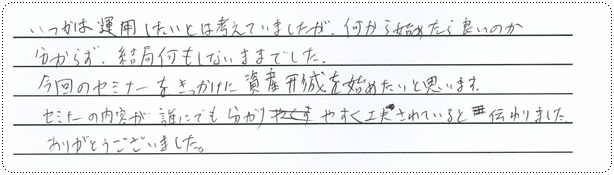 いつかは運用したいとは考えていましたが、何から始めたら良いのか
分からず、結局何もしないままでした。
今回のセミナーをきっかけに資産形成を始めたいと思います。
セミナーの内容が誰にでも分かりやすく工夫されていると伝わりました。
ありがとうございました。